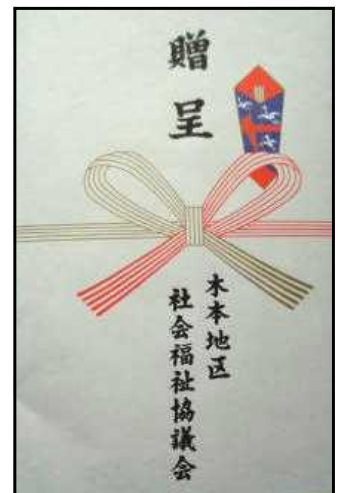 贈呈
木本地区
社会福祉協議会